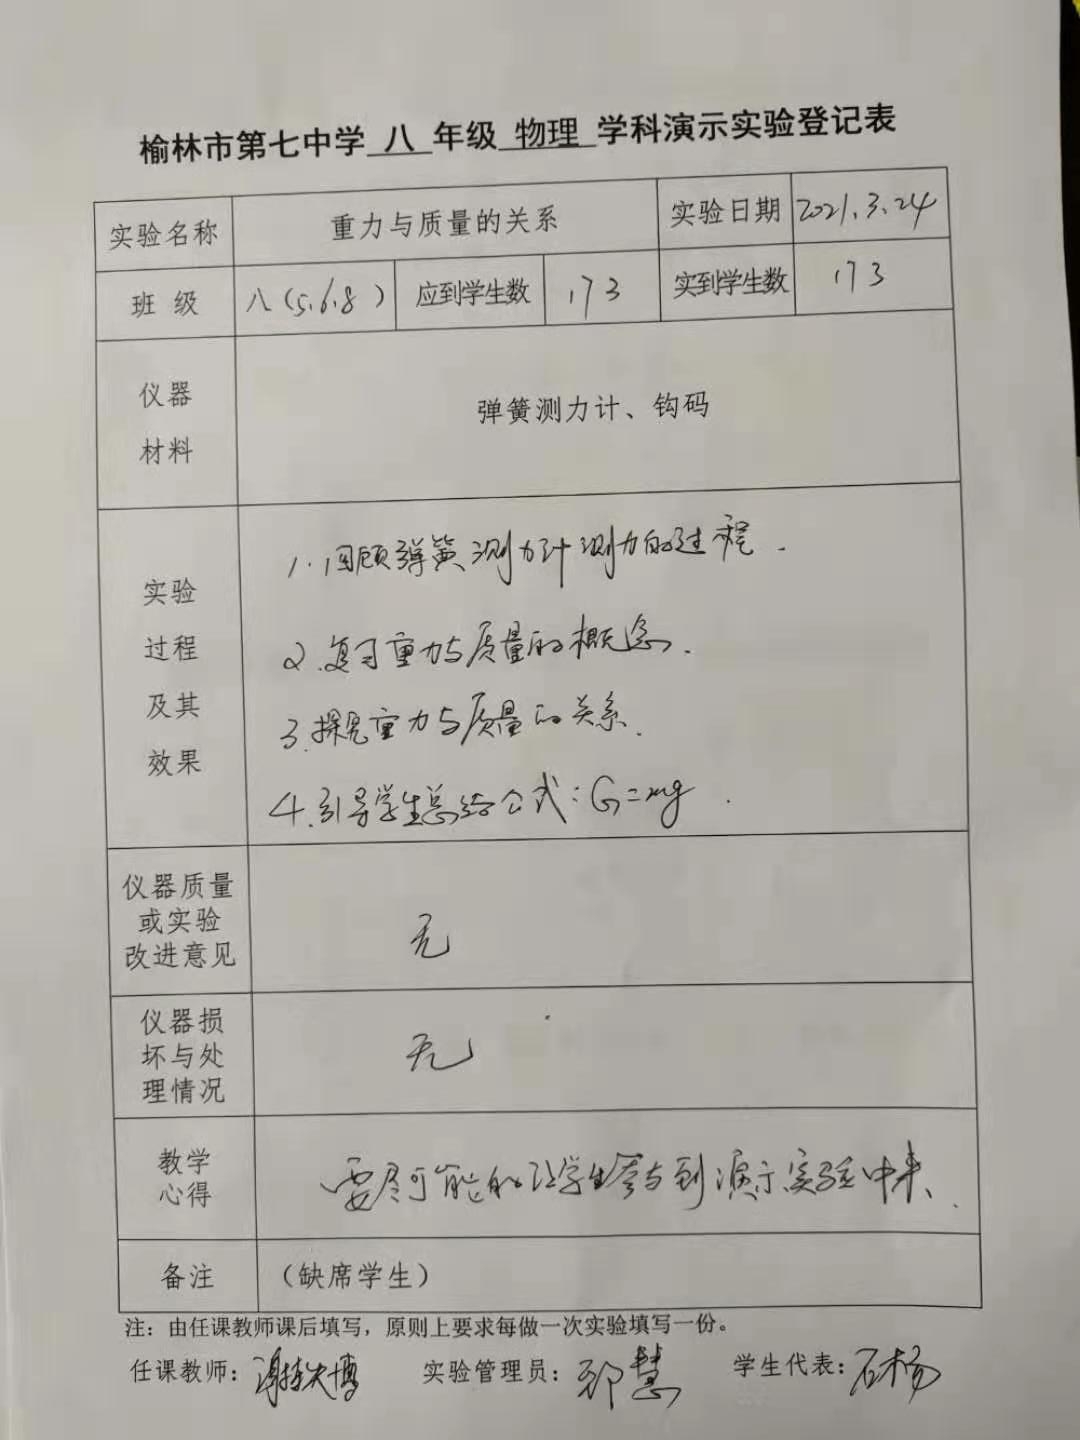 榆林市第七中学 八 年级 物理 学科演示实验登记表
实验名称 重力与质量的关系 实验日期 2021.3.24
班 级 八(5.6.8) 应到学生数 173 实到学生数 173
仪器
材料
弹簧测力计、钩码
实验
过程
及其
效果
1.回顾弹簧测力计测力的过程.
2.复习重力与质量的概念.
3.探究重力与质量的关系.
4.引导学生总结公式:G=mg.
仪器质量
或实验
改进意见
无
仪器损
坏与处
理情况
无
教学
心得
要尽可能的让学生参与到演示实验中来.
备注 (缺席学生)
注:由任课教师课后填写,原则上要求每做一次实验填写一份。
任课教师: 实验管理员: 慧 学生代表:石杨